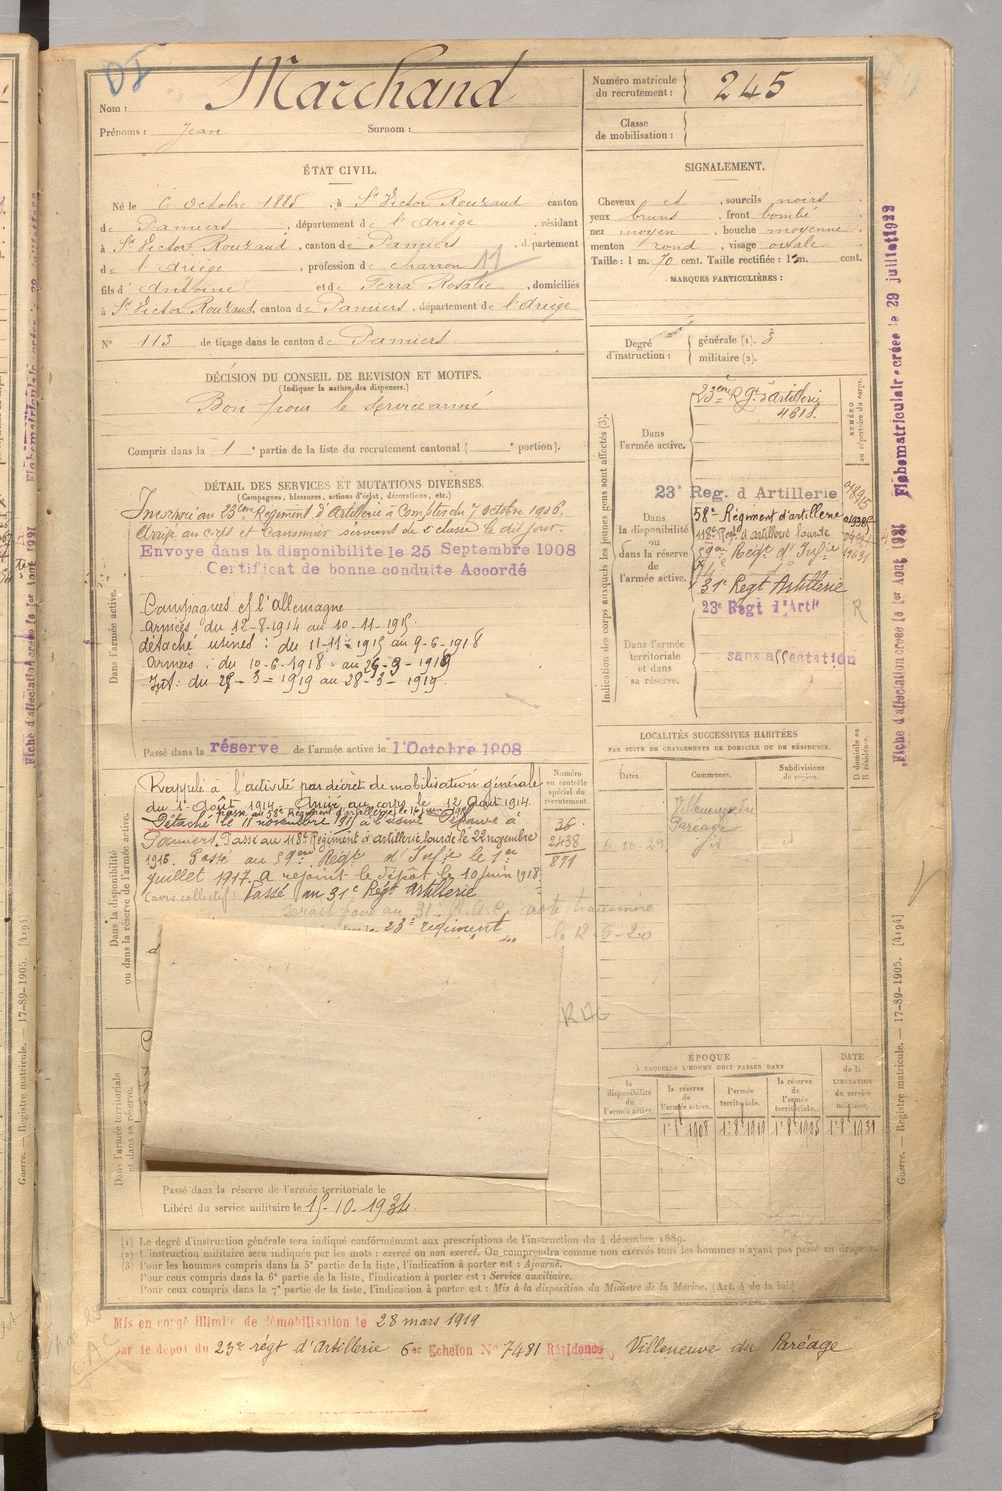 Nom : Marchand
Prénoms : Jean Surnom :
Numéro matricule du recrutement : 245
Classe de mobilisation :
ÉTAT CIVIL.
Né le 6 Octobre 1885, à St Victor Rouzaud canton
de Pamiers, département de l'Ariège, résidant
à St Victor Rouzaud, canton de Pamiers, département
de l'Ariège, profession de charron 11
fils d' Antoine et de Ferra Rosalie, domiciliés
à St Victor Rouzaud, canton de Pamiers, département de l'Ariège
N° 113 de tirage dans le canton de Pamiers
SIGNALEMENT.
Cheveux et, sourcils noirs
yeux bruns, front bombé
nez moyen, bouche moyenne
menton rond, visage ovale
Taille : 1 m. 70 cent. Taille rectifiée : 1 m. cent.
MARQUES PARTICULIÈRES :
Degré d'instruction : générale (1). 3
militaire (2).
DÉCISION DU CONSEIL DE REVISION ET MOTIFS.
(Indiquer la nature des dispenses.)
Bon pour le service armé
Compris dans la 1e partie de la liste du recrutement cantonal ( e portion).
DÉTAIL DES SERVICES ET MUTATIONS DIVERSES.
(Campagnes, blessures, actions d'éclat, décorations, etc.)
Dans l'armée active.
Inscorporé au 23ème Régiment d'Artillerie à Compter du 7 octobre 1906.
Arrivé au corps et Canonnier servant de 2e classe le dit jour.
Envoye dans la disponibilite le 25 Septembre 1908
Certificat de bonne conduite Accordé
Campagnes c/ l'allemagne
armées du 12-8-1914 au 10-11-1915
détaché usines : du 11-11-1915 au 9-6-1918
Armées : du 10-6-1918 au 26-3-1919
Int : du 27-3-1919 au 28-3-1919
Passé dans la réserve de l'armée active le 1 Octobre 1908
Indication des corps auxquels les jeunes gens sont affectés (3).
Dans l'armée active.
23ème Rgt d'artillerie
4618.
NUMÉRO au répertoire du corps.
Dans la disponibilité ou dans la réserve de l'armée active.
23e Reg. d Artillerie
58e Régiment d'artillerie
118e Regt d'artillerie lourde
59ème Regt d'Infie
31e Regt Artillerie
23e Regt d'Artie
R
Dans l'armée territoriale et dans sa réserve.
sans affectation
LOCALITÉS SUCCESSIVES HABITÉES
PAR SUITE DE CHANGEMENTS DE DOMICILE OU DE RÉSIDENCE.
Dates. Communes. Subdivisions de région. D domicile ou R résidence.
Villeneuve du
Pareage
6-10-29
Dans la disponibilité ou dans la réserve de l'armée active.
Numéro au contrôle spécial du recrutement.
36
2438
871
Rappelé à l'activité par décret de mobilisation générale
du 1er Août 1914. Arrivé au corps le 12 Août 1914.
Passé au 58e Régiment d'artillerie le 16
Détaché le 11 novembre 1915 à l'usine à
Pamiers. Passé au 118e Régiment d'artillerie lourde le 22 novembre
1916. Passé au 59ème Régt d'Infie le 1er
juillet 1917. A rejoint le dépôt le 10 juin 1918
(avis collectif) Passé au 31e Régt Artillerie
serait passé au 31e
le 12-6-20
23e régiment
RAC
ÉPOQUE
À LAQUELLE L'HOMME DOIT PASSER DANS
la disponibilité de l'armée active. la réserve de l'armée active. l'armée territoriale. la réserve de l'armée territoriale.
DATE de la LIBÉRATION du service militaire.
Dans l'armée territoriale et dans sa réserve.
Passé dans la réserve de l'armée territoriale le
Libéré du service militaire le 15-10-1934
(1) Le degré d'instruction générale sera indiqué conformément aux prescriptions de l'instruction du 4 décembre 1889.
(2) L'instruction militaire sera indiquée par les mots : exercé ou non exercé. On comprendra comme non exercés tous les hommes n'ayant pas passé au drapeau.
(3) Pour les hommes compris dans la 5e partie de la liste, l'indication à porter est : Ajourné.
Pour ceux compris dans la 6e partie de la liste, l'indication à porter est : Service auxiliaire.
Pour ceux compris dans la 7e partie de la liste, l'indication à porter est : Mis à la disposition du Ministre de la Marine. (Art. 4 de la loi.)
Mis en congé illimité de démobilisation le 28 mars 1919
par le dépôt du 23e régt d'Artillerie 6er Echelon N° 7481 Résidence Villeneuve du Paréage
Guerre. — Registre matricule. — 17-89-1905. [4194]
Fiche matriculaire créée le 29 juillet 1922
Fiche d'affectation créée le 1er Aout 1921